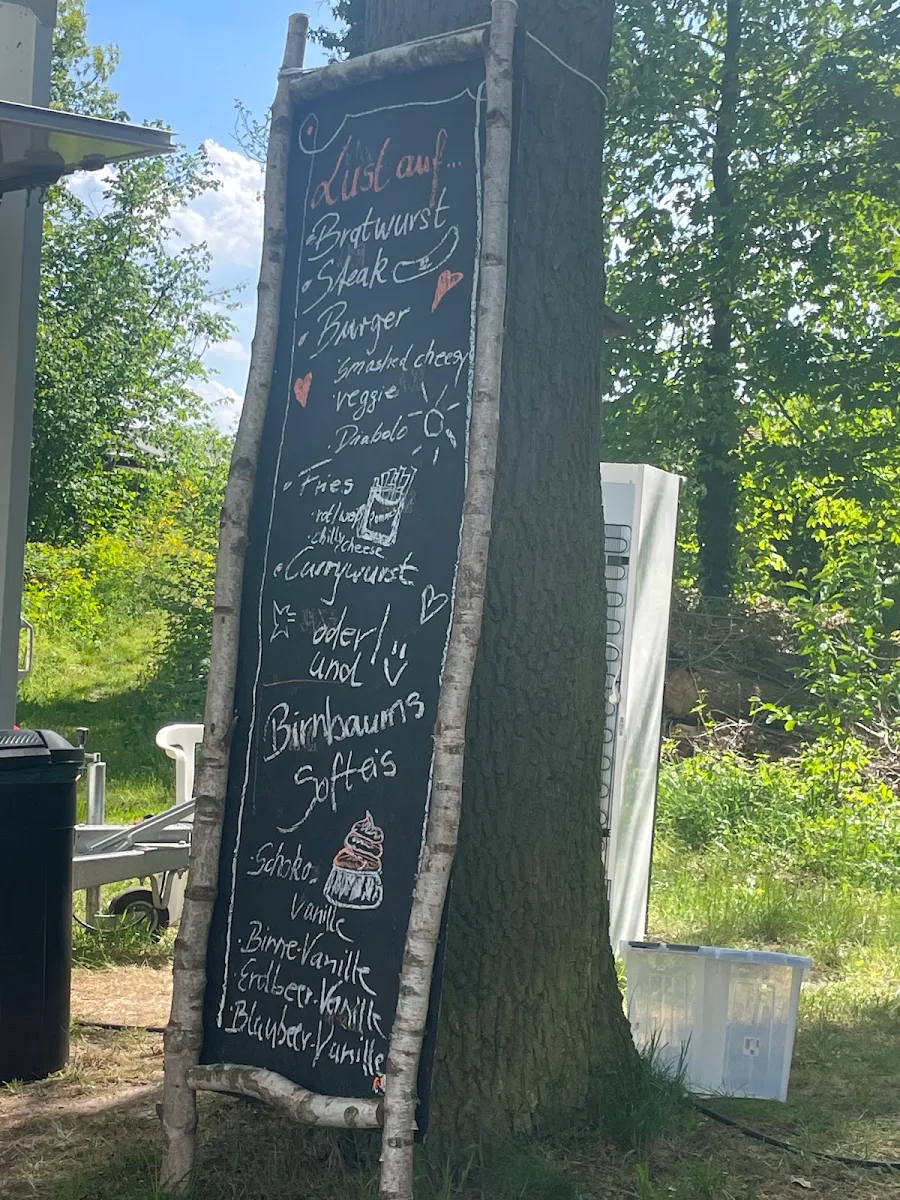 Lust auf...
Bratwurst
Steak
Burger
Smashed cheesy
veggie
Diabolo
Fries
rot/weiß
chilly cheese
Currywurst
oder/
und
Birnbaums
Softeis
Schoko-
Vanille
Birne-Vanille
Erdbeer-Vanille
Blaubeer-Vanille